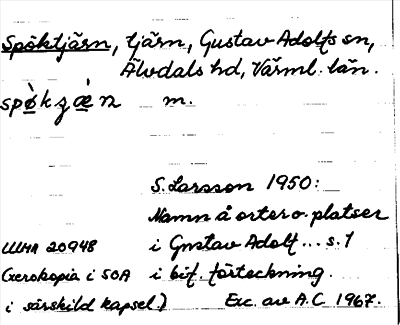 Spöktjärn, tjärn, Gustav Adolfs sn,
Älvdals hd, Värml. län.
spökzæn m.
S. Larsson 1950:
Namn å orter o. platser
ULMA 20948 i Gustav Adolf... s. 1
(Xerokopia i SOA i bif. förteckning.
i särskild kapsel.) Exc. av A.C. 1967.